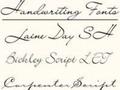 Handwriting Fonts
Laine Day SH
Bickley Script LET
CarpenterScript